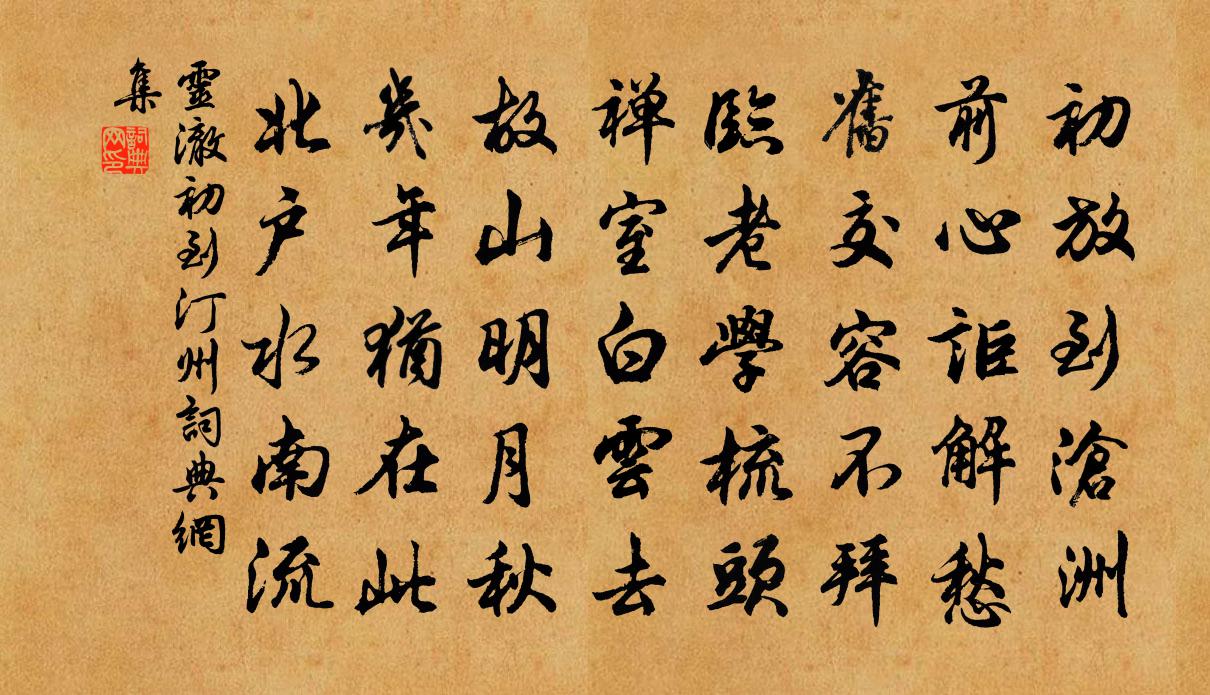 初放到滄洲
前心詎解愁
舊交容不拜
臨老學梳頭
禅室白雲去
故山明月秋
幾年猶在此
北户水南流
靈澈初到汀州詞典網
集
詞典
网印